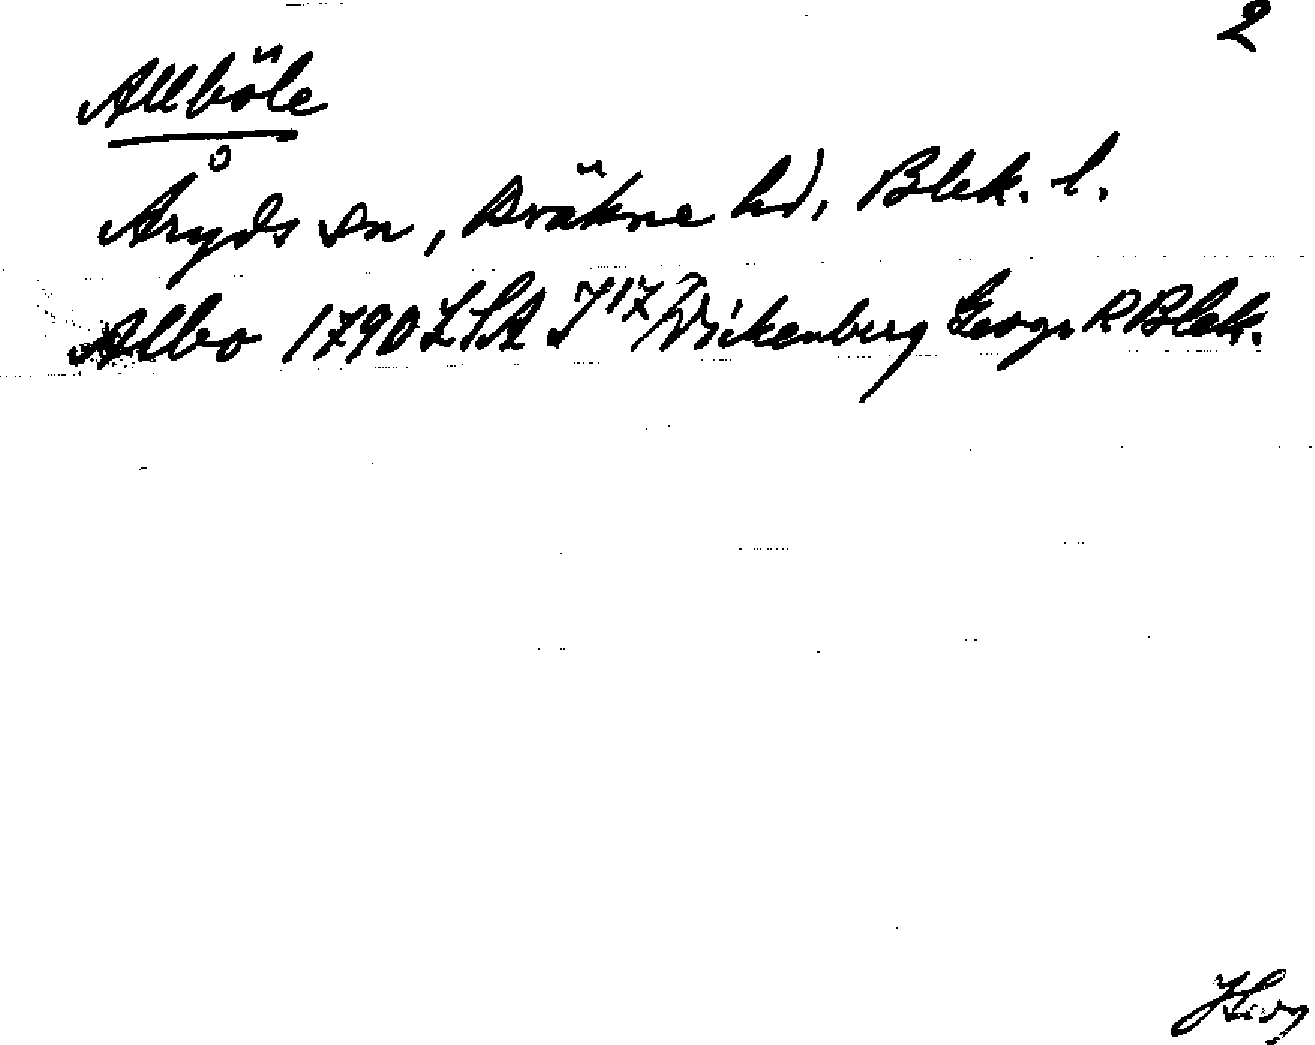 2
Allböle
Åryds sn, Bräkne hd, Blek. l.
Albo 1790 LSA J 17 Wickenberg Geogr R Blek.